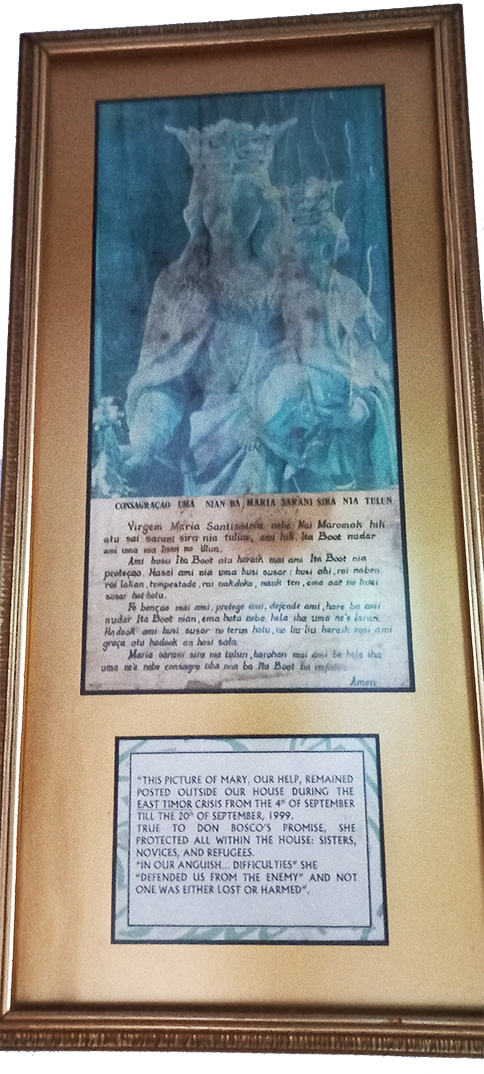 CONSAGRAÇAO UMA NIAN BA MARIA SARANI SIRA NIA TULUN
Virgem Maria Santissima nebe Nai Maromak hili
atu sai sarani sira nia tulun, ami hili Ita Boot nudar
ami uma nia Inan no Ulun.
Ami husu Ita Boot atu haraik mai ami Ita Boot nia
proteçao. Hasai ami nia uma husi susar: husi ahi, rai naben
rai lakan, tempestade, rai nakdoko, nauk ten, ema aat no husi
susar hot hotu.
Fo bençao mai ami, protege ami, defende ami, hare ba ami
nudar Ita Boot nian, ema hotu nebe hela iha uma ne'e laran.
Hadook ami husi susar no terus hotu, no liu liu haraik mai ami
graça atu hadook an husi sala.
Maria sarani sira nia tulun, harohan mai ami be hela iha
uma ne'e nebe consagra tiha ona ba Ita Boot ba
Amen
"THIS PICTURE OF MARY, OUR HELP, REMAINED
POSTED OUTSIDE OUR HOUSE DURING THE
EAST TIMOR CRISIS FROM THE 4th OF SEPTEMBER
TILL THE 20th OF SEPTEMBER, 1999.
TRUE TO DON BOSCO'S PROMISE, SHE
PROTECTED ALL WITHIN THE HOUSE: SISTERS,
NOVICES, AND REFUGEES.
"IN OUR ANGUISH... DIFFICULTIES" SHE
"DEFENDED US FROM THE ENEMY" AND NOT
ONE WAS EITHER LOST OR HARMED".